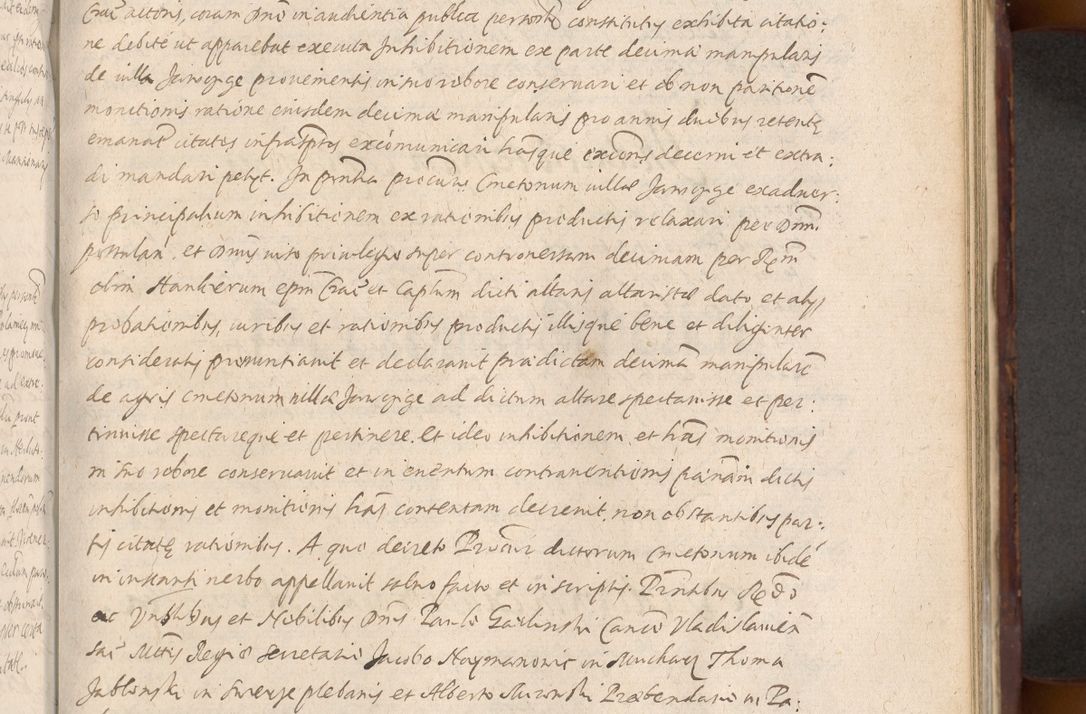 Crac̃ actoris, coram Dnõ in audientia publica personl̃r constitutis exhibita citatio:
ne debitè ut apparebat executa Inhibitionem ex parte decimæ manipularis
de villa Jansynge provenientis, in suo robore conservari et ob non paritionẽ
monitionis ratione eiusdem decimæ manipularis pro annis duobus retentę
emanat̃ citatos infrascp̃tos excommunicari hasque excõnis decerni et extra:
di mandari petyt. In pñtia procurats Cmetonum villæ Jansynge ex adver:
so principalium inhibitionem ex rationibus productis relaxari per Dnm̃
postulañ. et Dnus viso privilegio super controversam decimam per Rem̃
olim Hankierum epm̃ Crac̃ et Capłum dicti altaris altaristæ dato et alys
probationibus, iuribus et rationibus productis illisque bene et diliginter
consideratis pronuntiavit et declaravit prædictam decimã manipularẽ
de agris cmetonum villæ Jansynge ad dictum altare spectavisse et per:
tinuisse spectareque et pertinere. Et ideo inhibitionem et hras̃ monitionis
in suo robore conservavit et in eventum contraventionis pænam dictis
inhibitionis et monitionis hras̃ contentam decrevit, non obstantibus par:
tis citatę rationibus. A quo decreto Procur̃ dictorum cmetonum ibidẽ
in instanti verbo appellavit salvo facto et in scriptis. Prñtibus Rñdo
ac Vnblibus et Nobilibus Dnis Paulo Garlinski Canco Vladislavień
Sac̃ Mttis Regiæ Secretario Jacobo Naymanovic in Mucharz Thoma
Jablonski in Swerye plebanis et Alberto Murinski Præbendario in Pa: